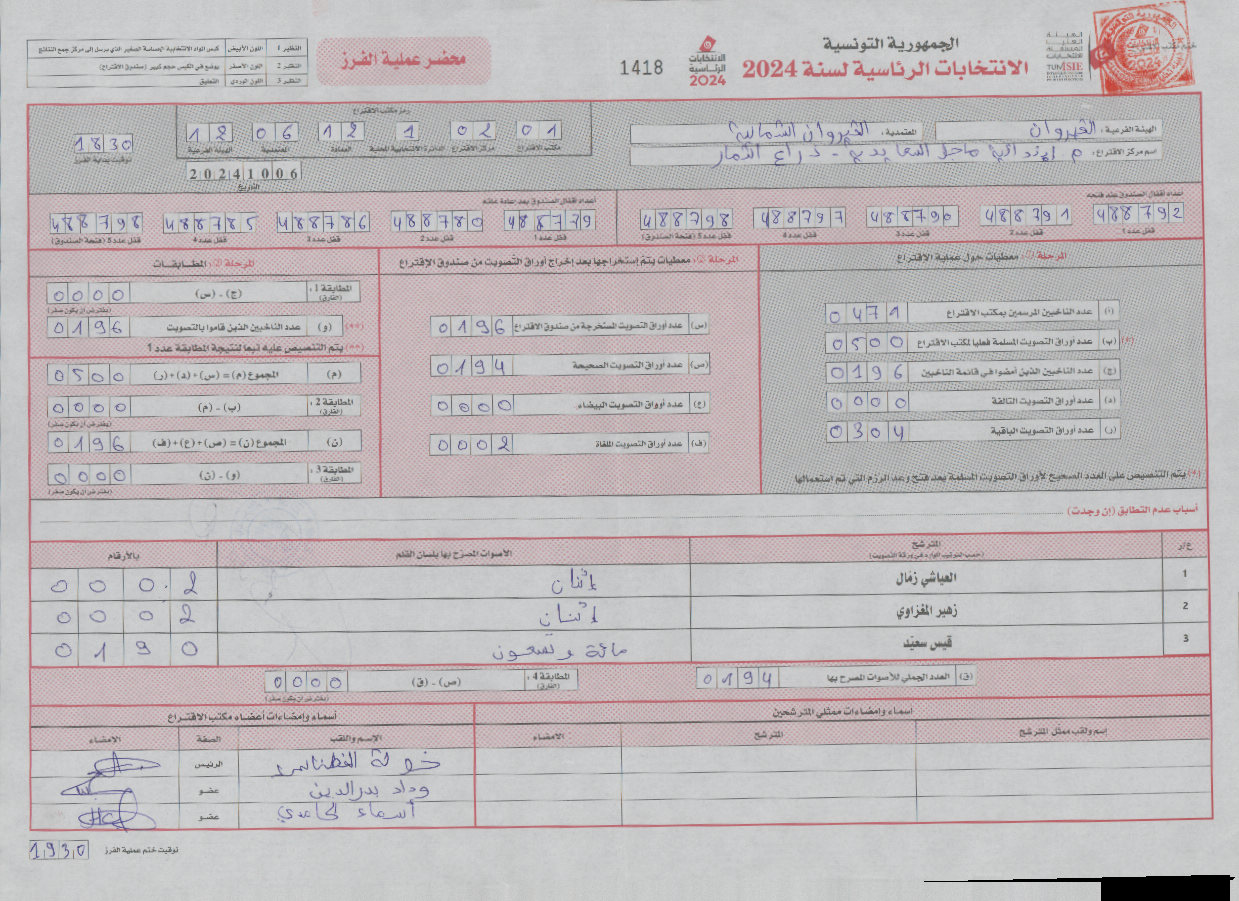 الجمهورية التونسية
الانتخابات الرئاسية لسنة 2024
الهيئة العليا المستقلة للانتخابات
TUNISIE
الانتخابات الرئاسية 2024
1418
محضر عملية الفرز
النظير 1 اللون الأبيض كيس المواد الانتخابية الإصاسة الصغير الذي يرسل إلى مركز جمع النتائج
النظير 2 اللون الأصفر يوضع في الكيس حجم كبير (صندوق الاقتراع)
النظير 3 اللون الوردي التعليق
الهيئة الفرعية : القيروان المعتمدية : القيروان الشمالية
اسم مركز الاقتراع : م إبتدائية ذراع التمار
رمز مكتب الاقتراع
01 02 1 12 06 12
مكتب الاقتراع مركز الاقتراع الدائرة الانتخابية المحلية العمادة المعتمدية الهيئة الفرعية
1830
توقيت بداية الفرز
20241006
التاريخ
أعداد أقفال الصندوق عند فتحه
488792 488791 488790 488797 488798
قفل عدد 1 قفل عدد 2 قفل عدد 3 قفل عدد 4 قفل عدد 5 (فتحة الصندوق)
أعداد أقفال الصندوق بعد إعادة غلقه
488779 488780 488786 488785 488798
قفل عدد 1 قفل عدد 2 قفل عدد 3 قفل عدد 4 قفل عدد 5 (فتحة الصندوق)
المرحلة ①: معطيات حول عملية الاقتراع
(أ) عدد الناخبين المرسمين بمكتب الاقتراع 0471
(*) (ب) عدد أوراق التصويت المسلمة فعليا لمكتب الاقتراع 0500
(ج) عدد الناخبين الذين أمضوا في قائمة الناخبين 0196
(د) عدد أوراق التصويت التالفة 0000
(ر) عدد أوراق التصويت الباقية 0304
(*) يتم التنصيص على العدد الصحيح لأوراق التصويت المسلمة بعد فتح وعد الرزم التي تم استعمالها
المرحلة ②: معطيات يتم إستخراجها بعد إخراج أوراق التصويت من صندوق الإقتراع
(س) عدد أوراق التصويت المستخرجة من صندوق الاقتراع 0196
(ص) عدد أوراق التصويت الصحيحة 0194
(ع) عدد أوواق التصويت البيضاء 0000
(ف) عدد أوراق التصويت الملغاة 0002
المرحلة ③: المطابقات
المطابقة 1 : (الفارق) (ج) - (س) 0000
(يفترض أن يكون صفر)
(**) (و) عدد الناخبين الذين قاموا بالتصويت 0196
(**) يتم التنصيص عليه تبعا لنتيجة المطابقة عدد 1
(م) المجموع (م) = (س) + (د) + (ر) 0500
المطابقة 2 : (الفارق) (ب) - (م) 0000
(يفترض أن يكون صفر)
(ن) المجموع (ن) = (ص) + (ع) + (ف) 0196
المطابقة 3 : (الفارق) (و) - (ن) 0000
(يفترض أن يكون صفر)
أسباب عدم التطابق (إن وجدت)
ع/ر المترشح (حسب الترتيب الوارد في ورقة التصويت) الأصوات المصرح بها بلسان القلم بالأرقام
1 العياشي زمّال إثنان 0002
2 زهير المغزاوي إثنان 0002
3 قيس سعيّد مائة وتسعون 0190
(ق) العدد الجملي للأصوات المصرح بها 0194
المطابقة 4 : (الفارق) (ص) - (ق) 0000
(يفترض أن يكون صفر)
أسماء وإمضاءات ممثلي المترشحين
إسم ولقب ممثل المترشح المترشح الامضاء
أسماء وإمضاءات أعضاء مكتب الاقتراع
الإسم واللقب الصفة الامضاء
خولة الرئيس
وداد بدر الدين عضو
أسماء عضو
توقيت ختم عملية الفرز 1930